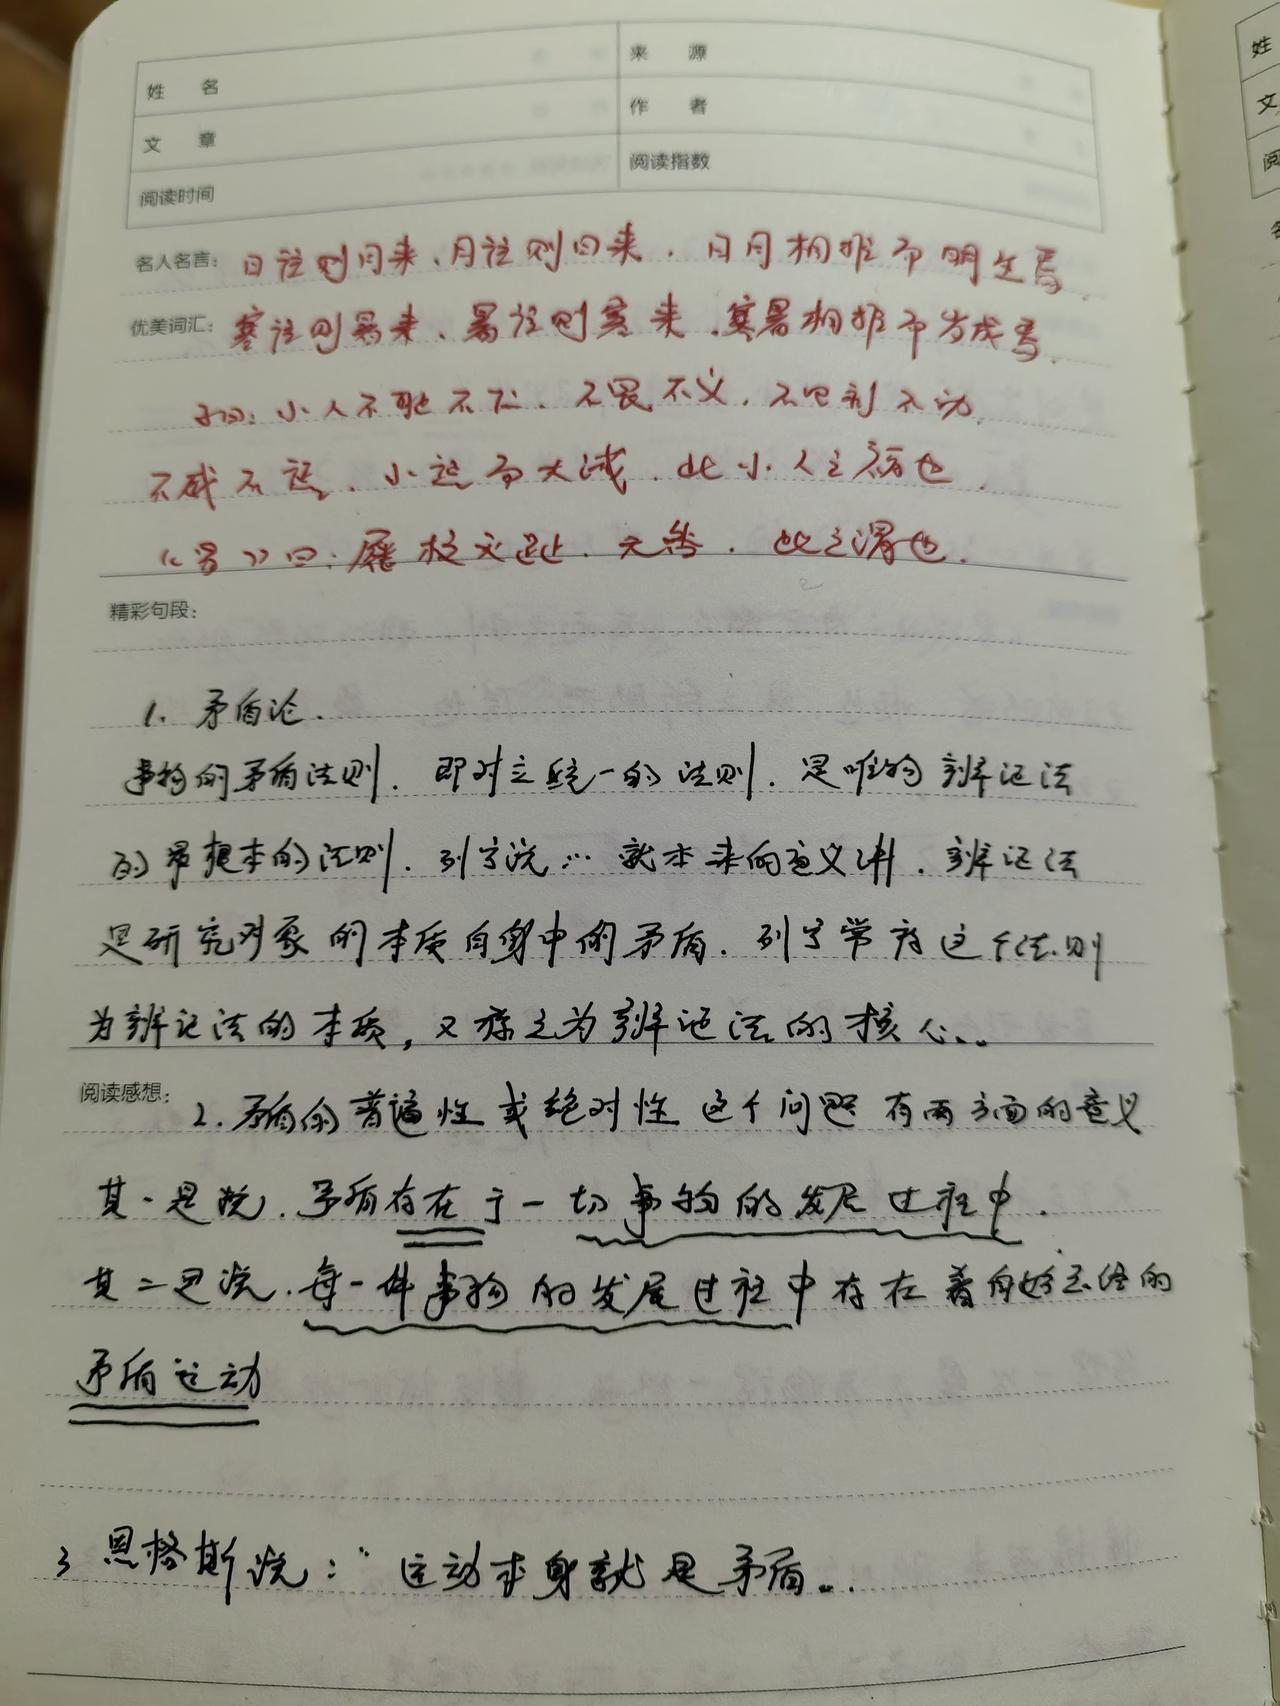 姓 名 来 源
文 章 作 者
阅读时间 阅读指数
名人名言: 日往则月来、月往则日来.日月相推而明生焉.
优美词汇: 寒往则暑来、暑往则寒来.寒暑相推而岁成焉.
子曰:小人不耻不仁.不畏不义.不见利不劝.
不威不惩.小惩而大诫.此小人之福也.
《易》曰:履校灭趾.无咎.此之谓也.
精彩句段:
1. 矛盾论.
事物的矛盾法则.即对立统一的法则.是唯物辩证法
的最根本的法则.列宁说:“就本来的意义讲.辩证法
是研究对象的本质自身中的矛盾.列宁常称这个法则
为辩证法的本质,又称之为辩证法的核心.。
阅读感想: 2.矛盾的普遍性或绝对性这个问题有两方面的意义
其一是说.矛盾存在于一切事物的发展过程中.
其二是说.每一件事物的发展过程中存在着自始至终的
矛盾运动
3 恩格斯说:“运动本身就是矛盾。.
姓
文
阅